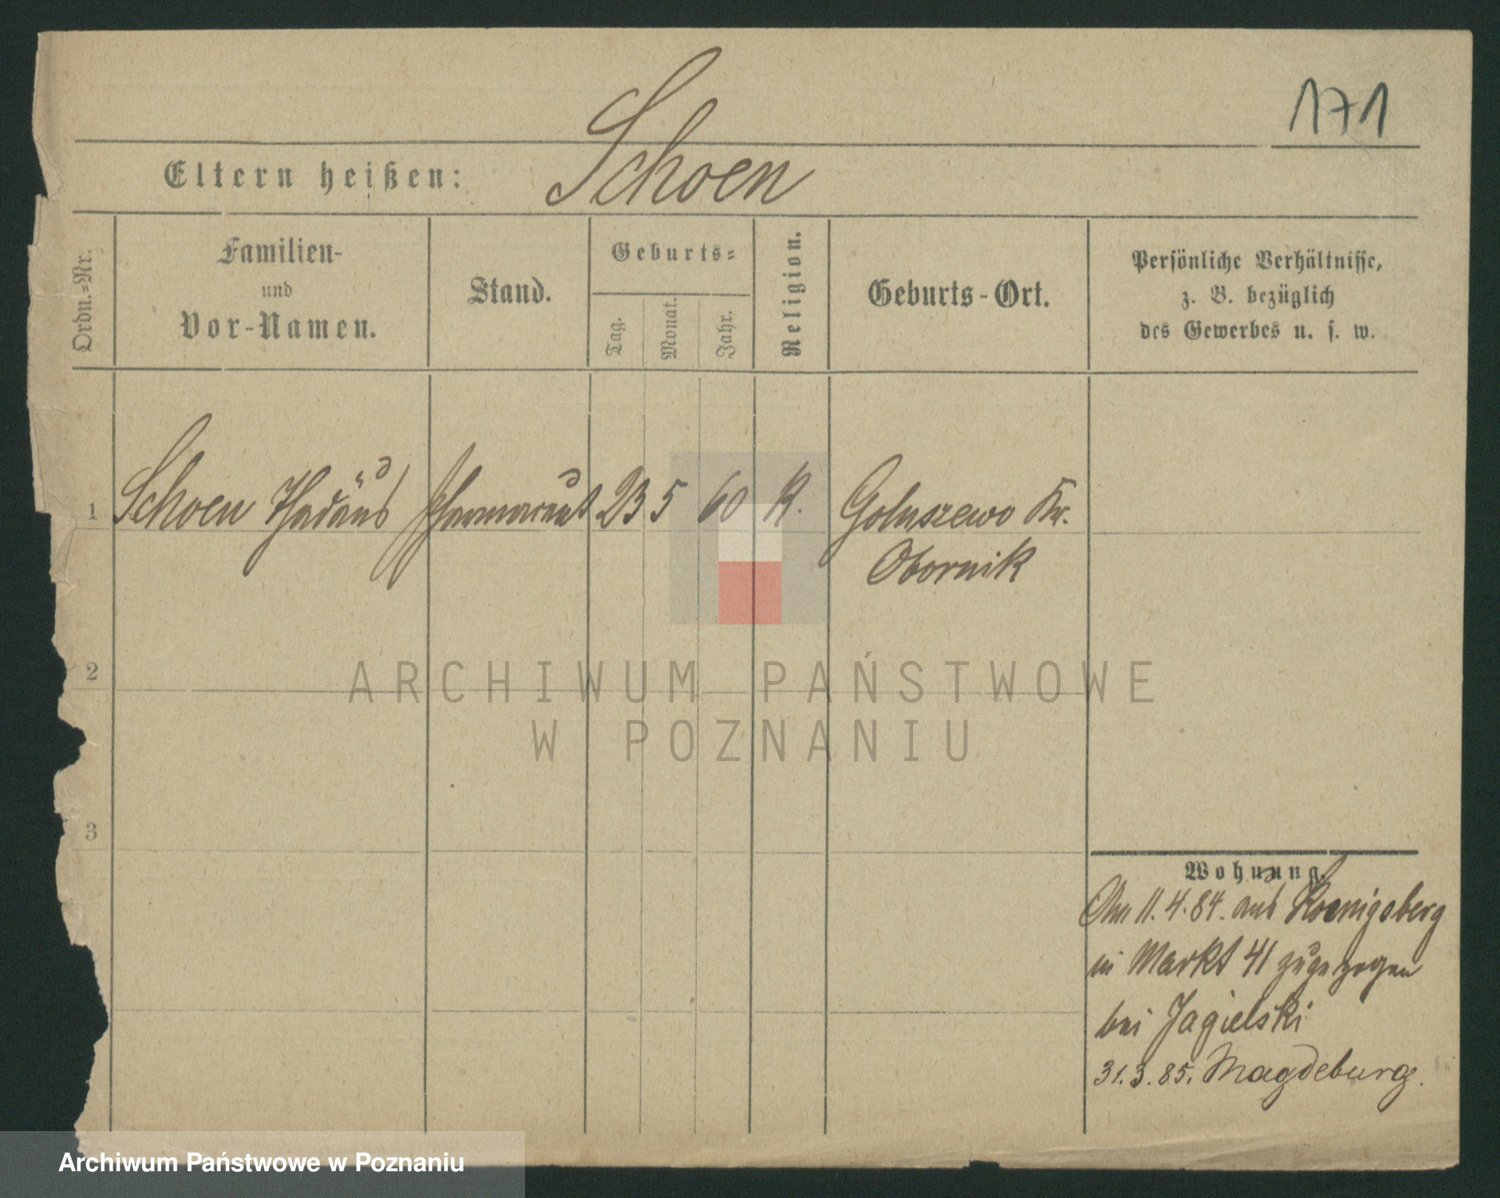 171
Eltern heißen: Schoen
Ordn.-Nr.
Familien-
und
Vor-Namen.
Stand.
Geburts-
Tag.
Monat.
Jahr.
Religion.
Geburts-Ort.
Persönliche Verhältnisse,
z. B. bezüglich
des Gewerbes u. s. w.
1 Schoen Thadäus Pharmaceut 23 5 60 K. Goluszewo Kr.
Obornik
2
3
ARCHIWUM PAŃSTWOWE
W POZNANIU
Wohnung.
Am 11.4.84. aus Koenigsberg
in Markt 41 zugezogen
bei Jagielski
31.3.85. Magdeburg.
Archiwum Państwowe w Poznaniu